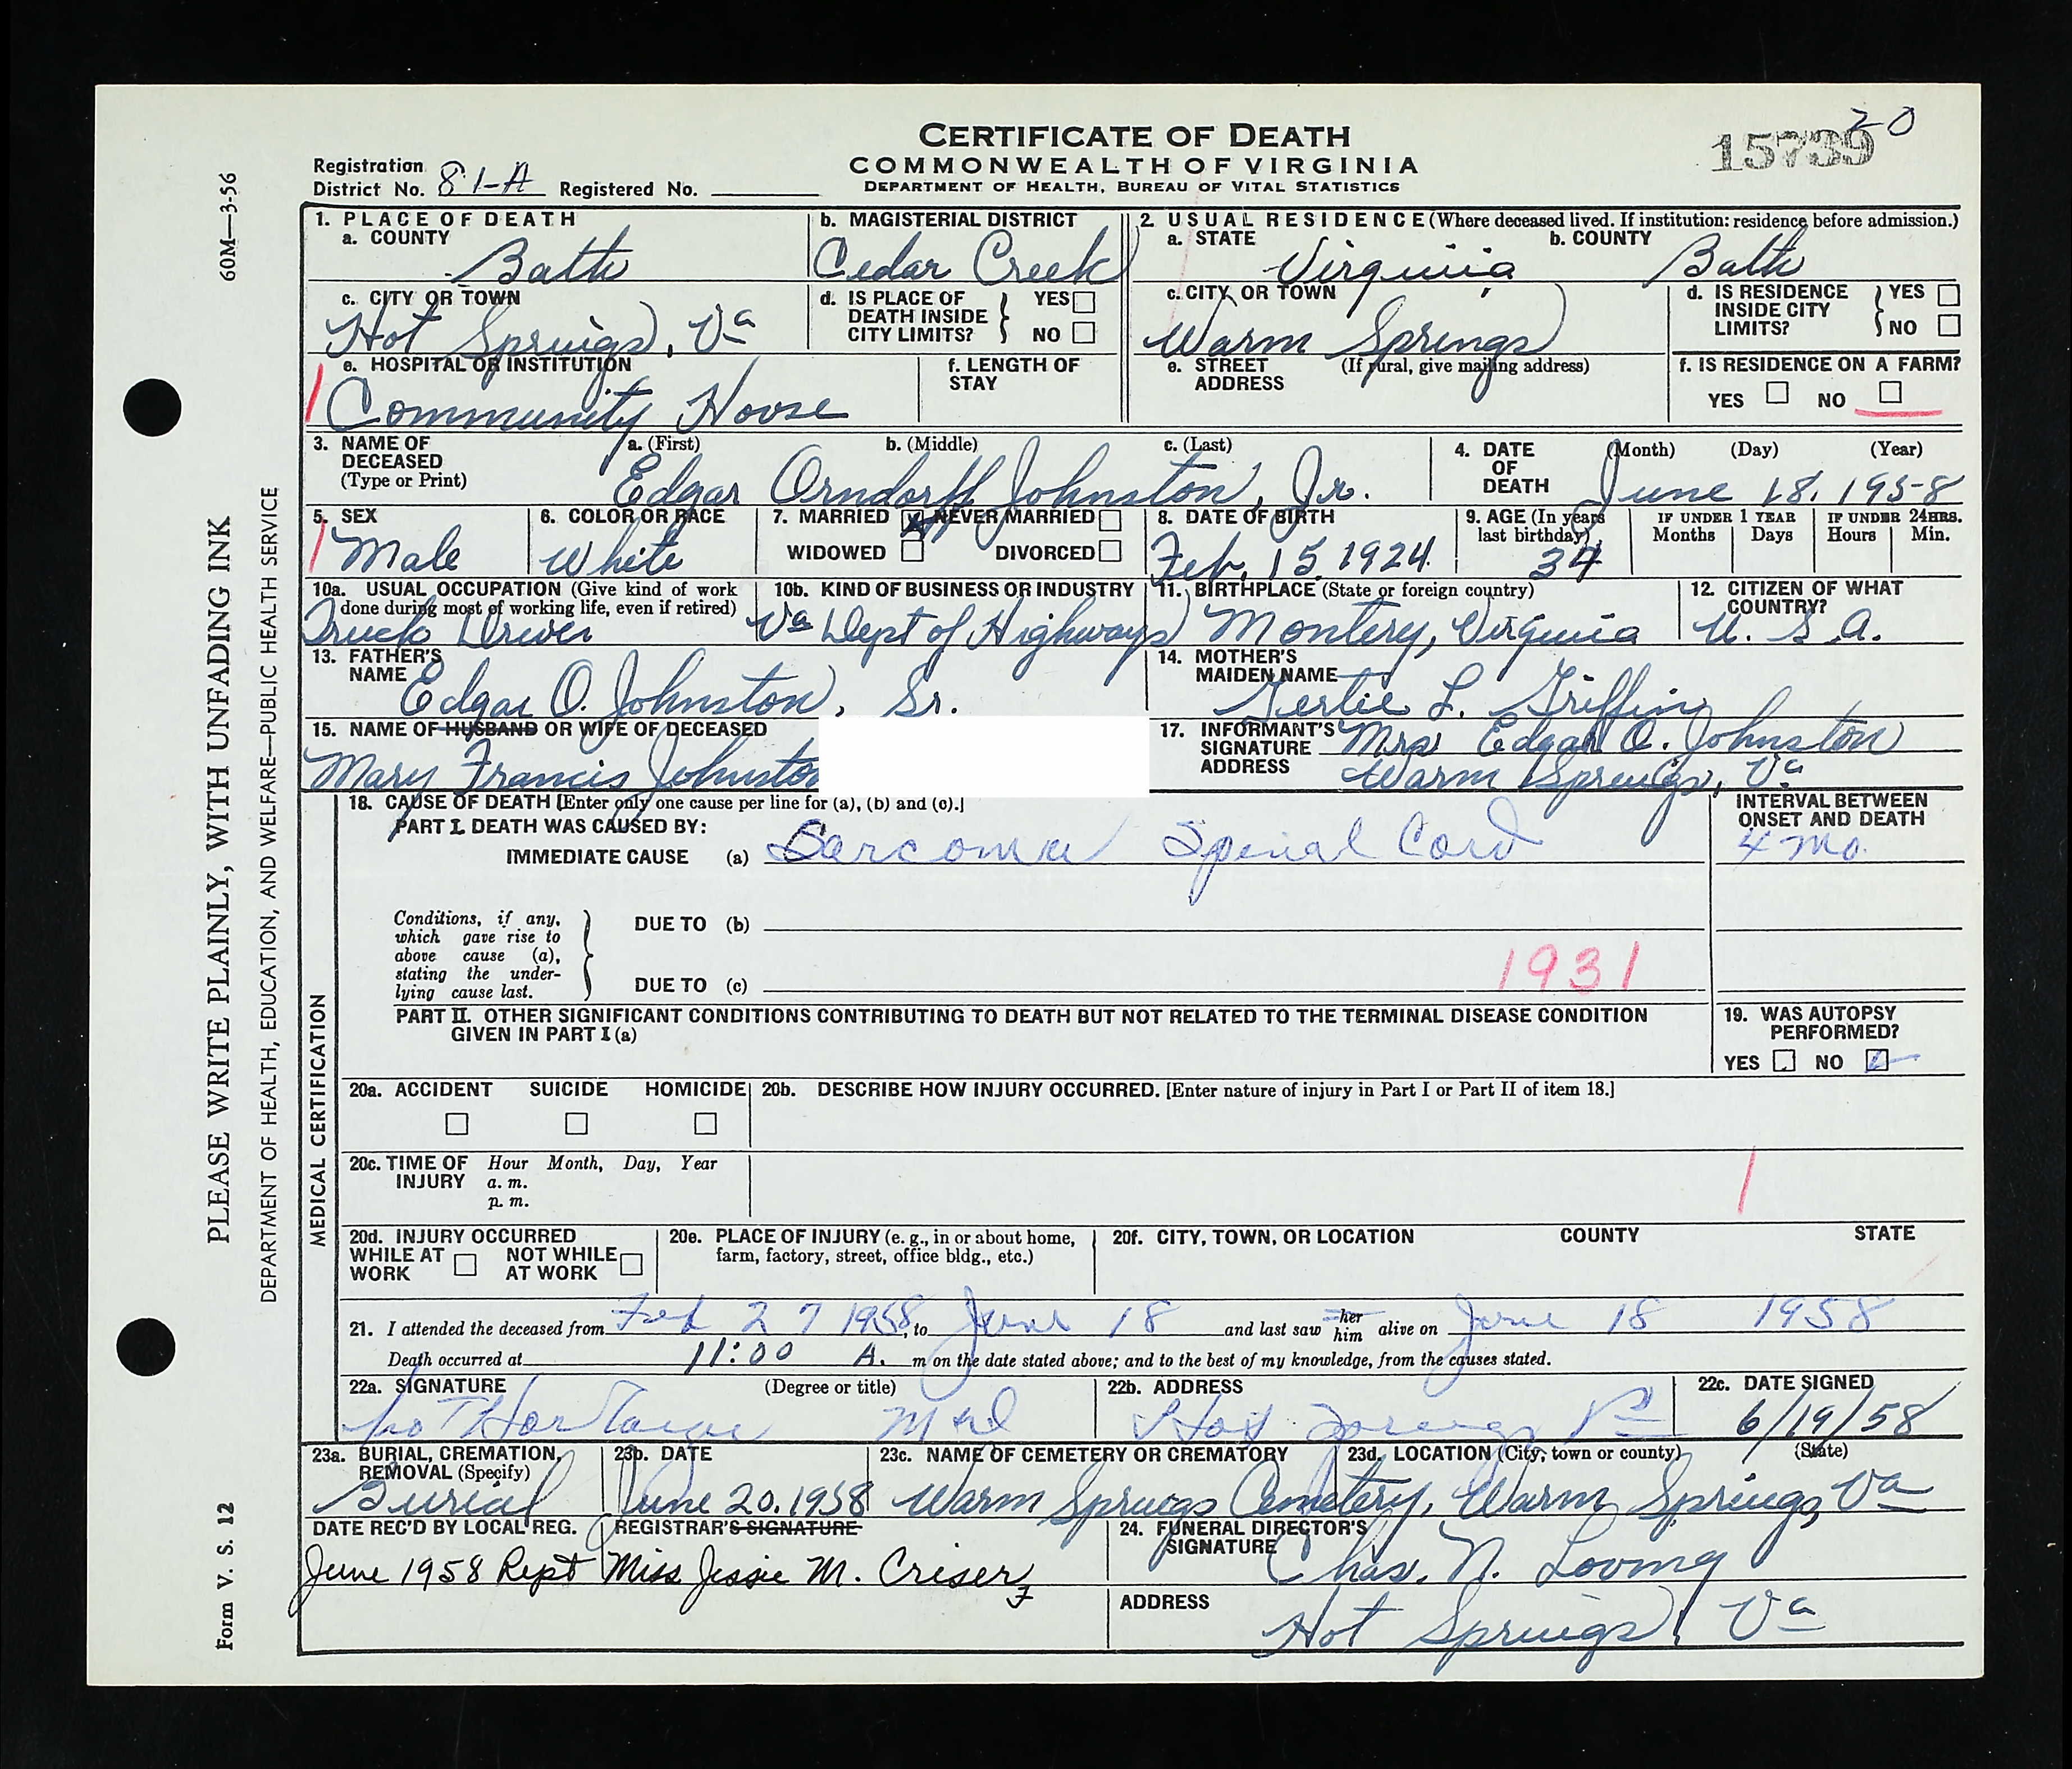 20
CERTIFICATE OF DEATH
COMMONWEALTH OF VIRGINIA
DEPARTMENT OF HEALTH, BUREAU OF VITAL STATISTICS
15739
Registration District No. 81-A Registered No.
60M—3-56
PLEASE WRITE PLAINLY, WITH UNFADING INK
DEPARTMENT OF HEALTH, EDUCATION, AND WELFARE—PUBLIC HEALTH SERVICE
Form V. S. 12
1. PLACE OF DEATH
a. COUNTY
Bath
b. MAGISTERIAL DISTRICT
Cedar Creek
2. USUAL RESIDENCE (Where deceased lived. If institution: residence before admission.)
a. STATE
Virginia
b. COUNTY
Bath
c. CITY OR TOWN
Hot Springs, Va
d. IS PLACE OF DEATH INSIDE CITY LIMITS? YES NO
c. CITY OR TOWN
Warm Springs
d. IS RESIDENCE INSIDE CITY LIMITS? YES NO
e. HOSPITAL OR INSTITUTION
Community House
f. LENGTH OF STAY
e. STREET ADDRESS (If rural, give mailing address)
f. IS RESIDENCE ON A FARM?
YES NO
3. NAME OF DECEASED (Type or Print)
a. (First) b. (Middle) c. (Last)
Edgar Orndorff Johnston, Jr.
4. DATE OF DEATH (Month) (Day) (Year)
June 18, 1958
5. SEX
Male
6. COLOR OR RACE
White
7. MARRIED X NEVER MARRIED
WIDOWED DIVORCED
8. DATE OF BIRTH
Feb. 15 1924
9. AGE (In years last birthday)
34
IF UNDER 1 YEAR Months Days
IF UNDER 24 HRS. Hours Min.
10a. USUAL OCCUPATION (Give kind of work done during most of working life, even if retired)
Truck Driver
10b. KIND OF BUSINESS OR INDUSTRY
Va Dept of Highways
11. BIRTHPLACE (State or foreign country)
Montery, Virginia
12. CITIZEN OF WHAT COUNTRY?
U. S. A.
13. FATHER'S NAME
Edgar O. Johnston, Sr.
14. MOTHER'S MAIDEN NAME
Gertie L. Griffin
15. NAME OF HUSBAND OR WIFE OF DECEASED
Mary Francis Johnston
17. INFORMANT'S SIGNATURE Mrs Edgar O. Johnston
ADDRESS Warm Springs, Va
MEDICAL CERTIFICATION
18. CAUSE OF DEATH [Enter only one cause per line for (a), (b) and (c).]
PART I. DEATH WAS CAUSED BY:
IMMEDIATE CAUSE (a) Sarcoma Spinal Cord
INTERVAL BETWEEN ONSET AND DEATH
4 mo.
Conditions, if any, which gave rise to above cause (a), stating the underlying cause last.
DUE TO (b)
DUE TO (c)
1931
PART II. OTHER SIGNIFICANT CONDITIONS CONTRIBUTING TO DEATH BUT NOT RELATED TO THE TERMINAL DISEASE CONDITION GIVEN IN PART I (a)
19. WAS AUTOPSY PERFORMED?
YES NO
20a. ACCIDENT SUICIDE HOMICIDE
20b. DESCRIBE HOW INJURY OCCURRED. [Enter nature of injury in Part I or Part II of item 18.]
20c. TIME OF INJURY Hour Month, Day, Year
a. m.
p. m.
20d. INJURY OCCURRED
WHILE AT WORK NOT WHILE AT WORK
20e. PLACE OF INJURY (e. g., in or about home, farm, factory, street, office bldg., etc.)
20f. CITY, TOWN, OR LOCATION COUNTY STATE
21. I attended the deceased from Feb 27 1958, to June 18 and last saw her him alive on June 18 1958
Death occurred at 11:00 A. m on the date stated above; and to the best of my knowledge, from the causes stated.
22a. SIGNATURE (Degree or title)
22b. ADDRESS
Hot Springs Va
22c. DATE SIGNED
6/19/58
23a. BURIAL, CREMATION, REMOVAL (Specify)
Burial
23b. DATE
June 20, 1958
23c. NAME OF CEMETERY OR CREMATORY
Warm Springs Cemetery,
23d. LOCATION (City, town or county) (State)
Warm Springs, Va
DATE REC'D BY LOCAL REG.
June 1958 Rept
REGISTRAR'S SIGNATURE
Miss Jessie M. Criser
24. FUNERAL DIRECTOR'S SIGNATURE
Chas. N. Loving
ADDRESS
Hot Springs, Va